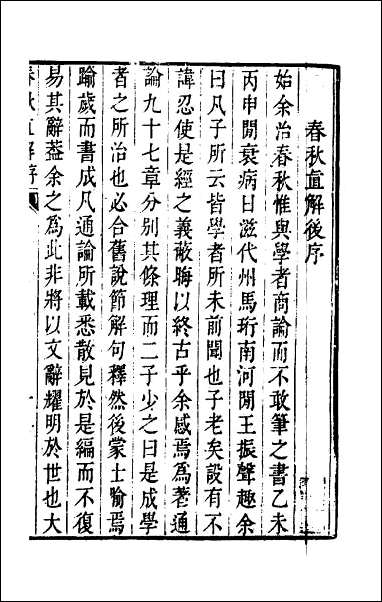 春秋直解後序
始余治春秋惟與學者商論而不敢筆之書乙未
丙申閒衰病日滋代州馬珩南河閒王振聲趣余
曰凡子所云皆學者所未前聞也子老矣設有不
諱忍使是經之義蔽晦以終古乎余感焉為著通
論九十七章分別其條理而二子少之曰是成學
者之所治也必合舊說節解句釋然後蒙士喻焉
踰歲而書成凡通論所載悉散見於是編而不復
易其辭蓋余之為此非將以文辭耀明於世也大
春秋直解序